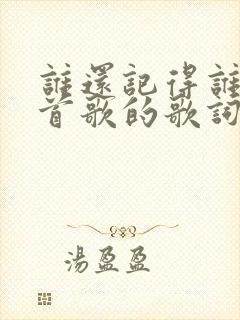 誰還記得誰
首歌的歌詞
湯盈盈